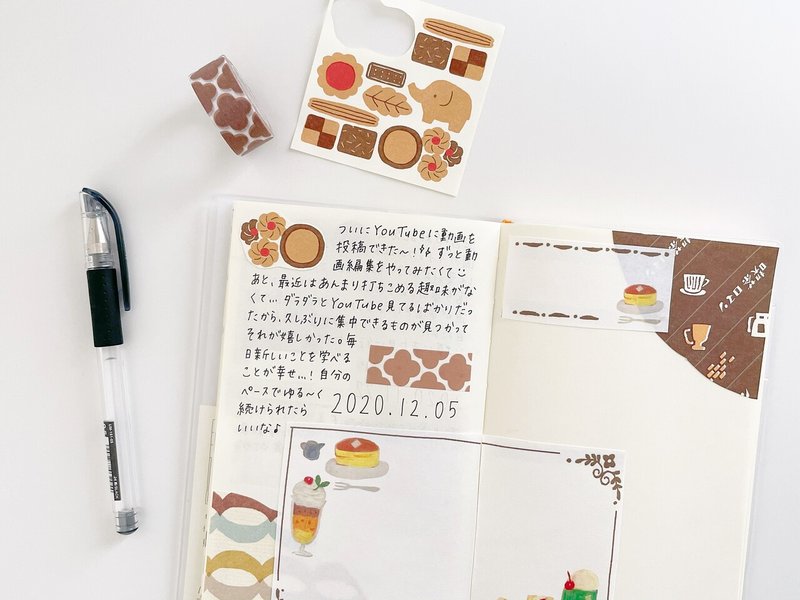 ついにYouTubeに動画を
投稿できた〜!♪♪ ずっと動
画編集をやってみたくて
あと、最近はあんまり打ちこめる趣味がな
くて… ダラダラとYouTube見てるばかりだっ
たから、久しぶりに集中できるものが見つかって
それが嬉しかった。毎
日新しいことを学べる
ことが幸せ…!自分の
ペースでゆる〜く
続けられたら
いいな♪
2020.12.05